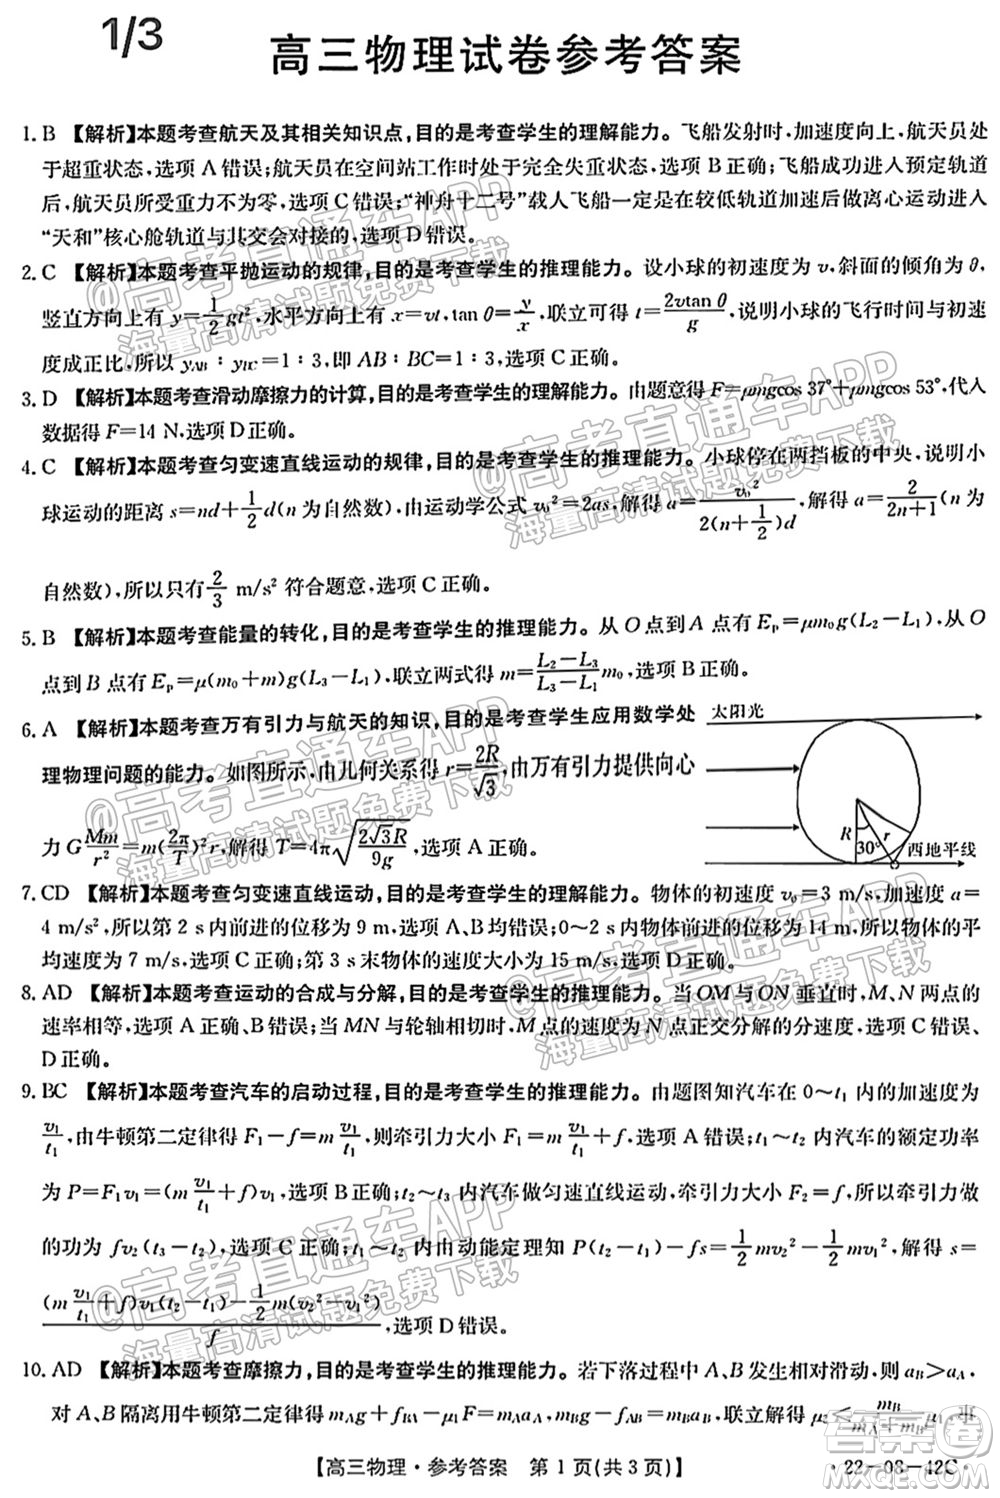 1/3
高三物理试卷参考答案
1. B 【解析】本题考查航天及其相关知识点,目的是考查学生的理解能力。飞船发射时,加速度向上,航天员处
于超重状态,选项 A 错误;航天员在空间站工作时处于完全失重状态,选项 B 正确;飞船成功进入预定轨道
后,航天员所受重力不为零,选项 C 错误;“神舟十二号”载人飞船一定是在较低轨道加速后做离心运动进入
“天和”核心舱轨道与其交会对接的,选项 D 错误。
2. C 【解析】本题考查平抛运动的规律,目的是考查学生的推理能力。设小球的初速度为 v,斜面的倾角为 θ,
竖直方向上有 y=1/2 gt²,水平方向上有 x=vt,tan θ=y/x,联立可得 t=2vtan θ/g,说明小球的飞行时间与初速
度成正比,所以 y_AB : y_BC=1 : 3,即 AB : BC=1 : 3,选项 C 正确。
3. D 【解析】本题考查滑动摩擦力的计算,目的是考查学生的理解能力。由题意得 F=μmgcos 37°+μmgcos 53°,代入
数据得 F=14 N,选项 D 正确。
4. C 【解析】本题考查匀变速直线运动的规律,目的是考查学生的推理能力。小球停在两挡板的中央,说明小
球运动的距离 s=nd+1/2 d(n 为自然数),由运动学公式 v₀²=2as,解得 a=v₀²/(2(n+1/2)d),解得 a=2/(2n+1)(n 为
自然数),所以只有 2/3 m/s² 符合题意,选项 C 正确。
5. B 【解析】本题考查能量的转化,目的是考查学生的推理能力。从 O 点到 A 点有 Eₚ=μm₀g(L₂−L₁),从 O
点到 B 点有 Eₚ=μ(m₀+m)g(L₃−L₁),联立两式得 m=(L₂−L₃)/(L₃−L₁) m₀,选项 B 正确。
6. A 【解析】本题考查万有引力与航天的知识,目的是考查学生应用数学处
理物理问题的能力。如图所示,由几何关系得 r=2R/√3,由万有引力提供向心
力 G Mm/r²=m(2π/T)²r,解得 T=4π√(2√3R/9g),选项 A 正确。
太阳光
R
r
30°
西地平线
7. CD 【解析】本题考查匀变速直线运动,目的是考查学生的理解能力。物体的初速度 v₀=3 m/s,加速度 a=
4 m/s²,所以第 2 s 内前进的位移为 9 m,选项 A、B 均错误;0~2 s 内物体前进的位移为 14 m,所以物体的平
均速度为 7 m/s,选项 C 正确;第 3 s 末物体的速度大小为 15 m/s,选项 D 正确。
8. AD 【解析】本题考查运动的合成与分解,目的是考查学生的推理能力。当 OM 与 ON 垂直时,M、N 两点的
速率相等,选项 A 正确、B 错误;当 MN 与轮轴相切时,M 点的速度为 N 点正交分解的分速度,选项 C 错误、
D 正确。
9. BC 【解析】本题考查汽车的启动过程,目的是考查学生的推理能力。由题图知汽车在 0~t₁ 内的加速度为
v₁/t₁,由牛顿第二定律得 F₁−f=m v₁/t₁,则牵引力大小 F₁=m v₁/t₁+f,选项 A 错误;t₁~t₂ 内汽车的额定功率
为 P=F₁v₁=(m v₁/t₁+f)v₁,选项 B 正确;t₂~t₃ 内汽车做匀速直线运动,牵引力大小 F₂=f,所以牵引力做
的功为 fv₂(t₃−t₂),选项 C 正确;t₁~t₂ 内由动能定理知 P(t₂−t₁)−fs=1/2 mv₂²−1/2 mv₁²,解得 s=
((m v₁/t₁+f)v₁(t₂−t₁)−1/2 m(v₂²−v₁²))/f,选项 D 错误。
10. AD 【解析】本题考查摩擦力,目的是考查学生的推理能力。若下落过程中 A、B 发生相对滑动,则 a_B>a_A,
对 A、B 隔离用牛顿第二定律得 m_Ag+f_BA−μ₁F=m_Aa_A,m_Bg−f_AB=m_Ba_B,联立解得 μ₂≤m_B/(m_A+m_B) μ₁,
【高三物理・参考答案 第 1 页(共 3 页)】
・22—08—12C・
@高考直通车APP
海量高清试题免费下载
答案圈